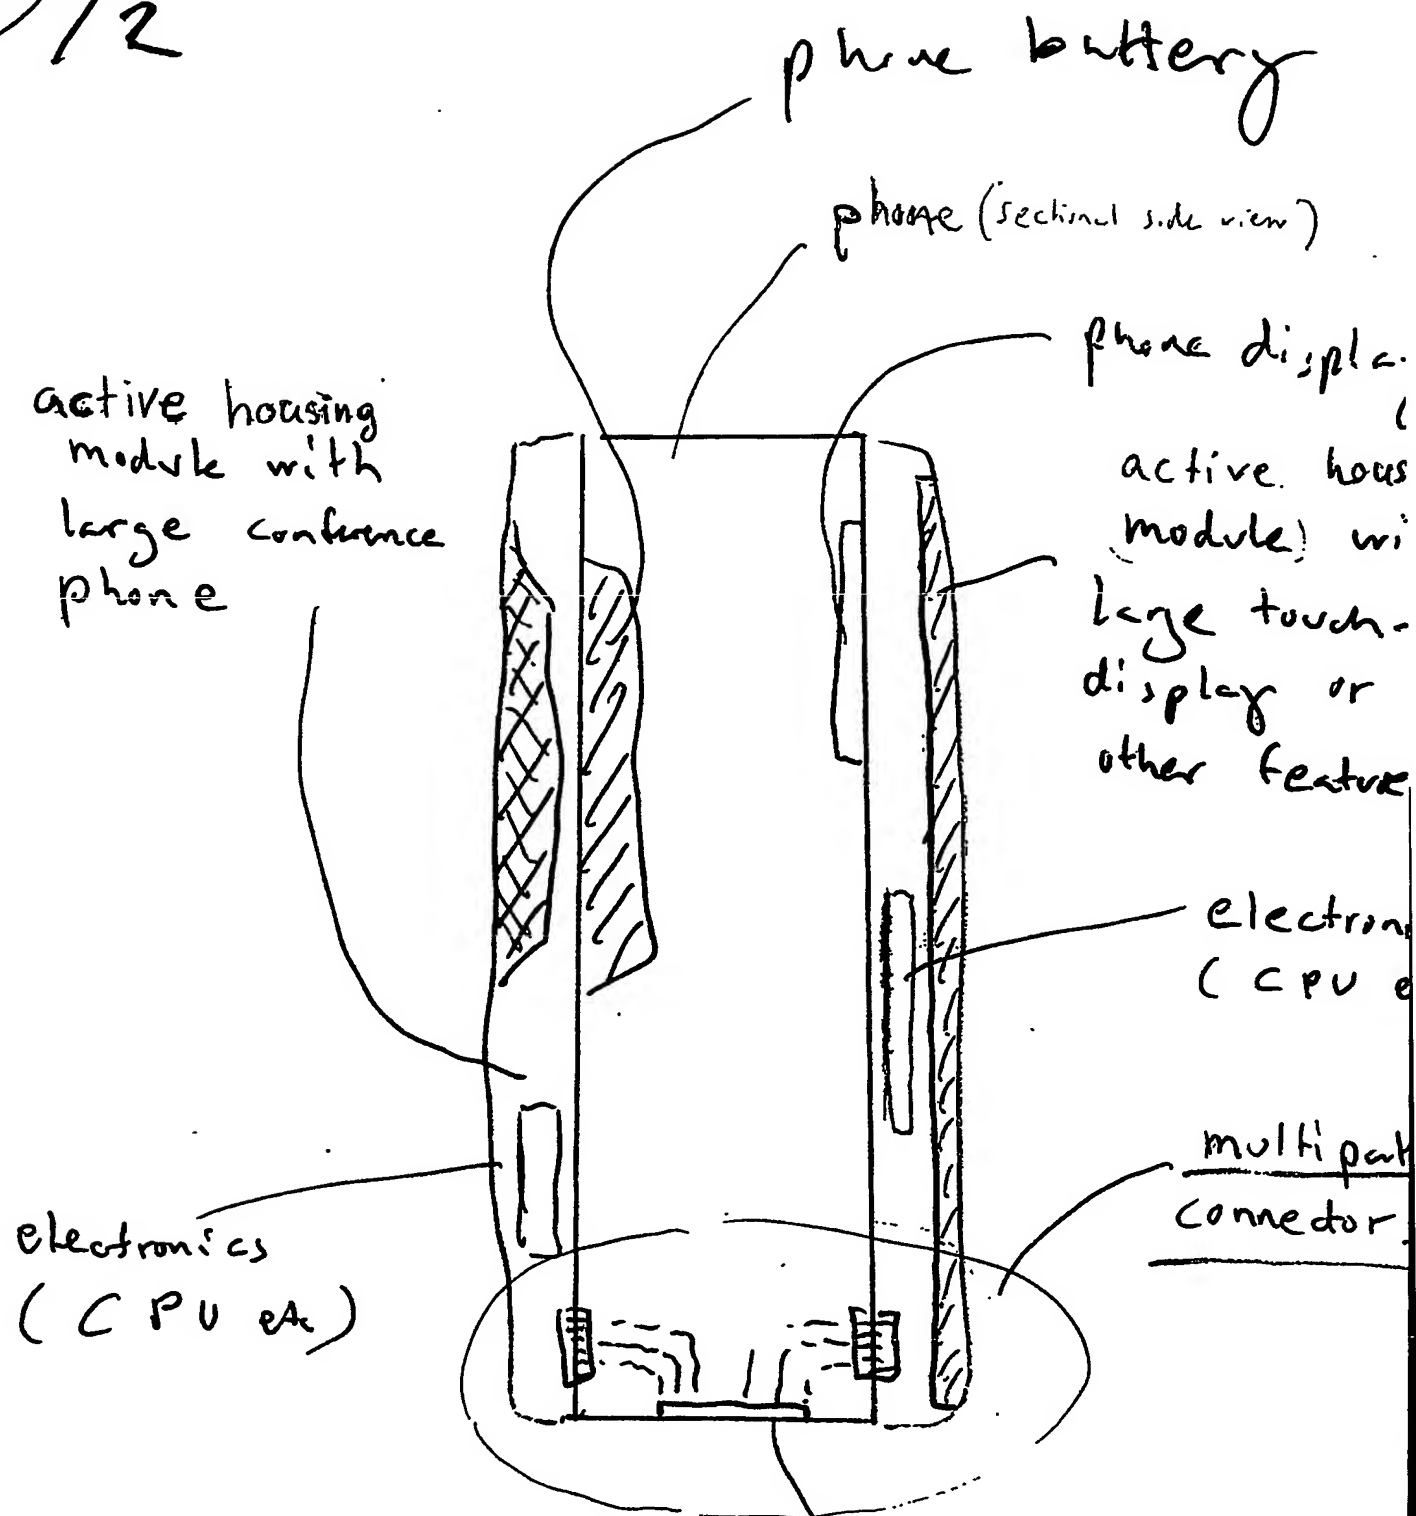 /2
phone battery
phone (sectional side view)
phone displa
(
active housing
module with
large conference
phone
active hous
(module) wi
large touch-
display or
other feature
electron
(CPU e
multipart
connector
electronics
(CPU etc)